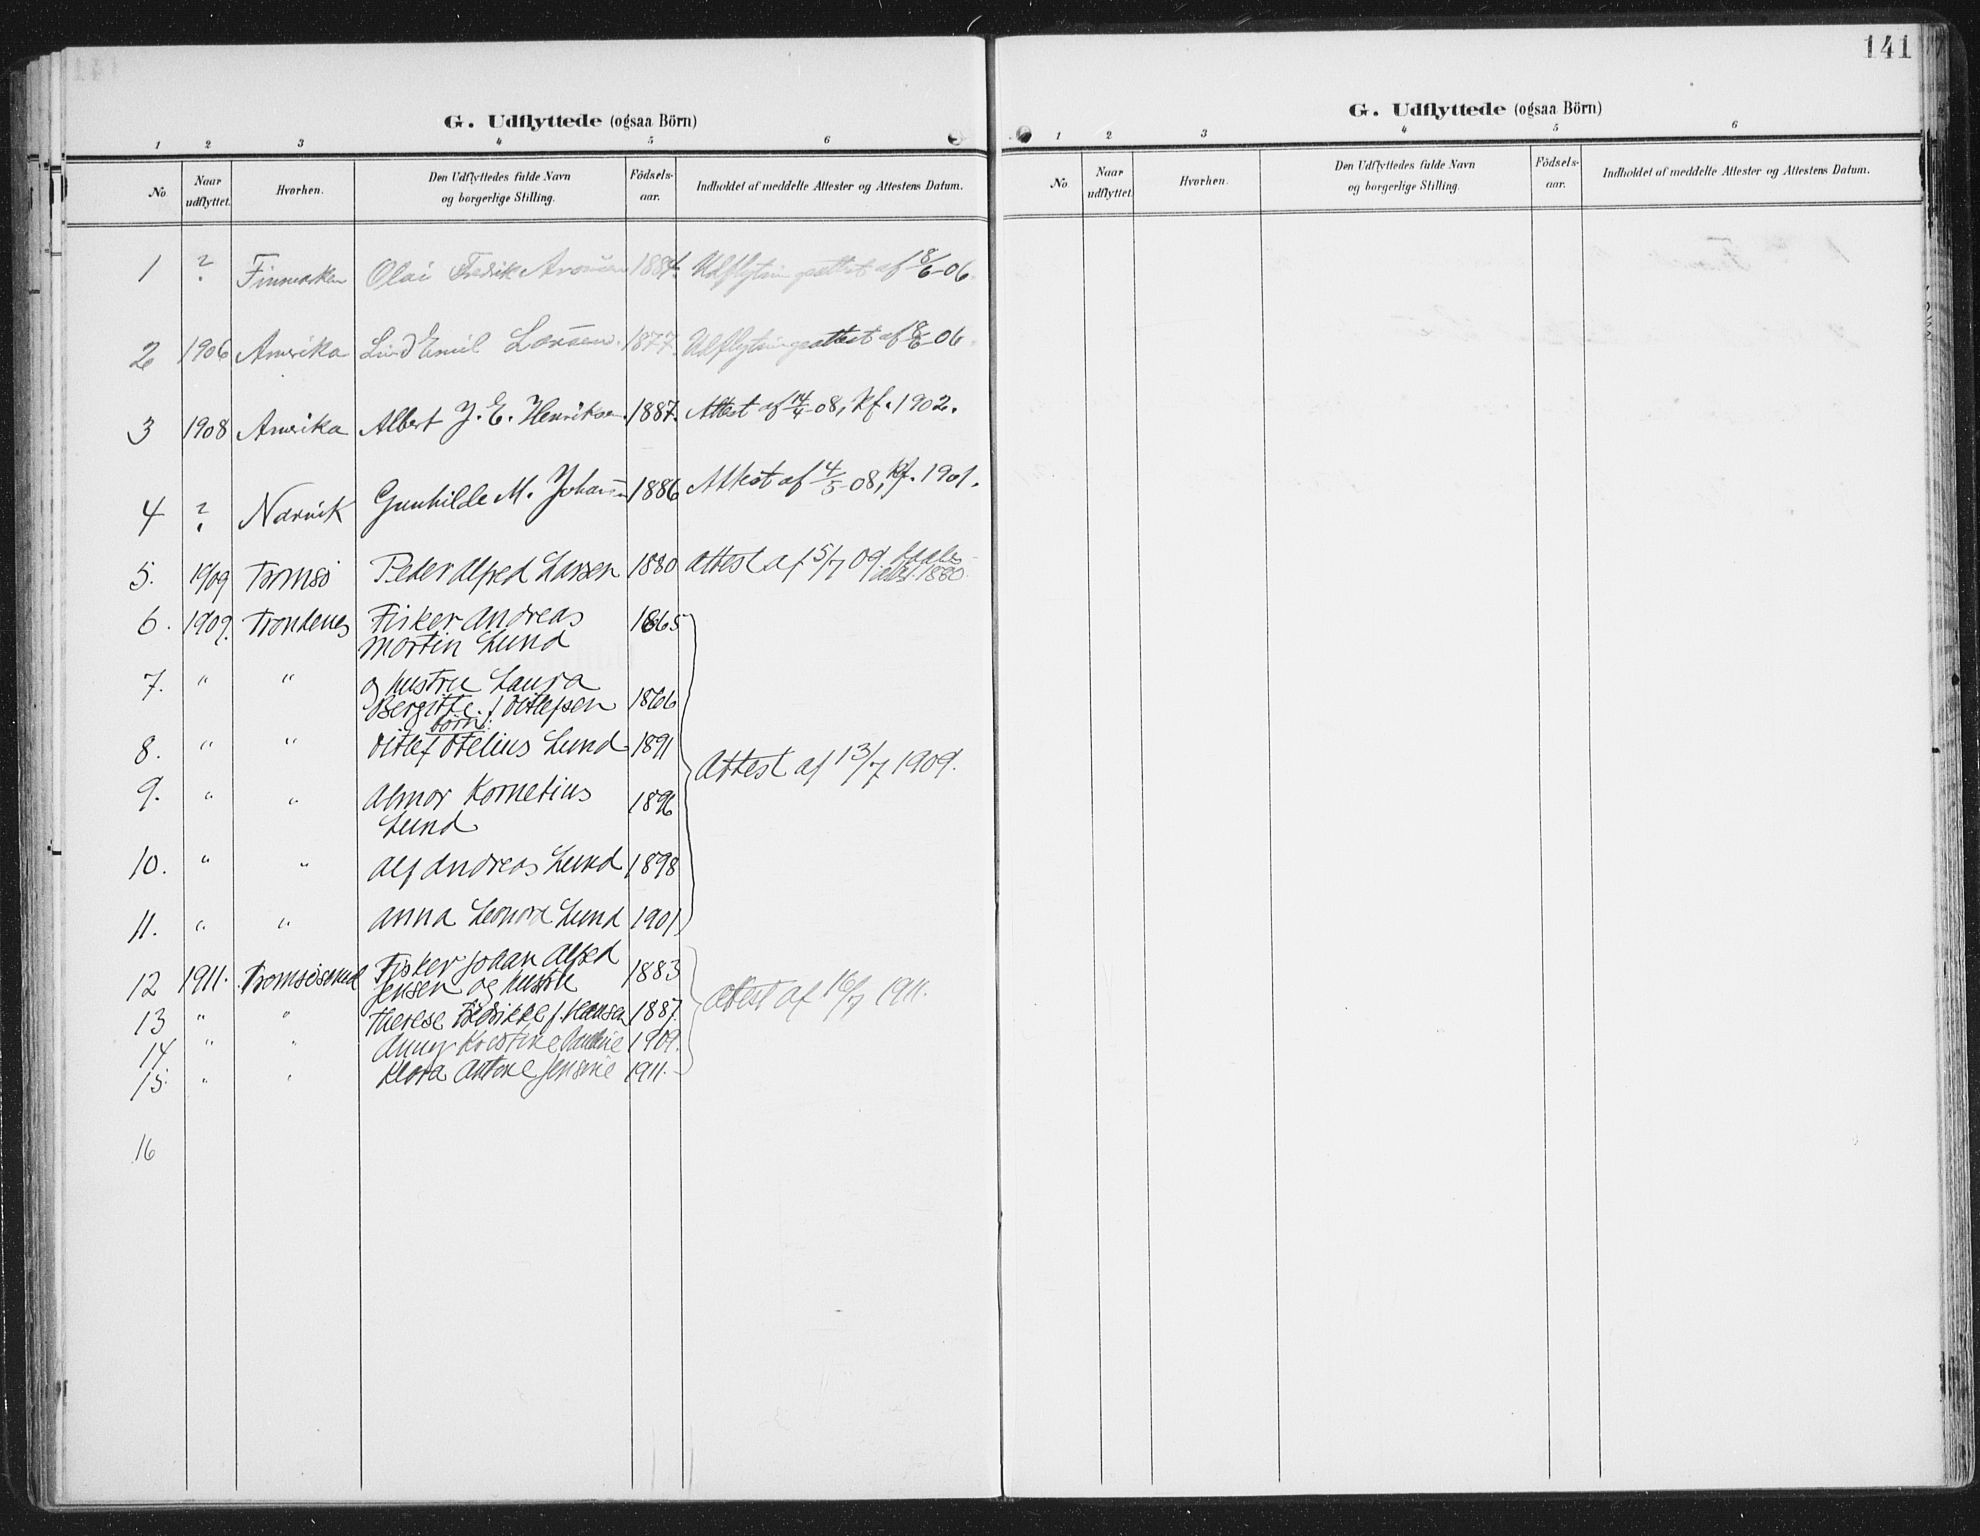 141
G. Udflyttede (ogsaa Börn)
1 2 3 4 5 6
No. Naar udflyttet. Hvorhen. Den Udflyttedes fulde Navn og borgerlige Stilling. Födsels-aar. Indholdet af meddelte Attester og Attestens Datum.
1 ? Finmarken Olai Fredrik Aronsen 1884. Udflytningsattest af 8/6-06.
2 1906 Amerika Emil Larsen. 1877. Udflytningsattest af 18/6-06.
3 1908 Amerika Albert J. E. Henriksen. 1887. Attest af 14/4-08, kf. 1902.
4 ? Narvik Gunhilde M. Johansen 1886 Attest af 4/5-08, kf. 1901.
5. 1909 Tromsö Peder Alfred Larsen 1880 Attest af 15/7 09. 1880.
6. 1909. Trondenes Fisker Andreas 1865
Martin Lund
7. " " og hustru Laura
Bergitte f. Ditlefsen 1866
börn:
8. " " Ditlef Otelius Lund 1891
Attest af 13/7 1909.
9. " " Almor Kornelius 1896
Lund
10. " " Alf Andreas Lund 1898
11. " " Anna Leonora Lund 1901
12 1911. Tromsösund Fisker Johan Alfred 1883
Jensen og hustru
Attest af 16/7 1911.
13 " " Therese Fredrikke f. Hansen 1887.
14 " " Anny Kristine 1909.
15. " " Klara Antone Jensine 1911.
16
G. Udflyttede (ogsaa Börn)
1 2 3 4 5 6
No. Naar udflyttet. Hvorhen. Den Udflyttedes fulde Navn og borgerlige Stilling. Födsels-aar. Indholdet af meddelte Attester og Attestens Datum.